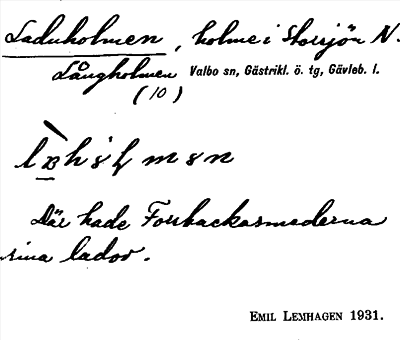 Laduholmen, holme i Storsjön N.
Långholmen Valbo sn, Gästrikl. ö. tg, Gävleb. l.
(10)
Där hade Forsbackasmederna
sina lador.
EMIL LEMHAGEN 1931.